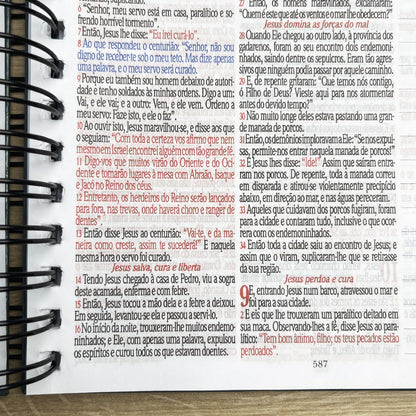 suplicando,
6 "Senhor, meu servo está em casa, paralítico e so-
frendo horrível tormento".
7 Então, Jesus lhe disse: "Eu irei curá-lo".
8 Ao que respondeu o centurião: "Senhor, não sou
digno de receber-te sob o meu teto. Mas dize apenas
uma palavra, e o meu servo será curado.
9 Porque eu também sou homem debaixo de autori-
dade e tenho soldados às minhas ordens. Digo a um:
Vai, e ele vai; e a outro: Vem, e ele vem. Ordeno a
meu servo: Faze isto, e ele o faz".
10 Ao ouvir isto, Jesus maravilhou-se, e disse aos que
o seguiam: "Com toda a certeza vos afirmo que nem
mesmo em Israel encontrei alguém com tão grande fé.
11 Digo-vos que muitos virão do Oriente e do Oci-
dente e tomarão lugares à mesa com Abraão, Isaque
e Jacó no Reino dos céus.
12 Entretanto, os herdeiros do Reino serão lançados
para fora, nas trevas, onde haverá choro e ranger de
dentes".
13 Então disse Jesus ao centurião: "Vai-te, e da ma-
neira como creste, assim te sucederá!" E naquela
mesma hora o servo foi curado.
Jesus salva, cura e liberta
14 Tendo Jesus chegado à casa de Pedro, viu a sogra
deste acamada, enferma e com febre.
15 Então, Jesus tocou a mão dela e a febre a deixou.
Em seguida, levantou-se ela e passou a servi-lo.
16 No início da noite, trouxeram-lhe muitos endemo-
ninhados; e Ele, com apenas uma palavra, expulsou
os espíritos e curou todos os que estavam doentes.
27 Então, os homens maravilhados, exclamaram:
"Quem é este que até os ventos e o mar lhe obedecem?"
Jesus domina as forças do mal
28 Quando Ele chegou ao outro lado, à província dos
gadarenos, foram ao seu encontro dois endemoni-
nhados, saindo dentre os sepulcros. Eram tão agres-
sivos que ninguém podia passar por aquele caminho.
29 E, de repente gritaram: "Que temos nós contigo,
ó Filho de Deus? Vieste aqui para nos atormentar
antes do devido tempo?"
30 Não muito longe deles estava pastando uma gran-
de manada de porcos.
31 Então, os demônios imploravam a Ele: "Se nos expul-
sas, permite-nos entrar naquela manada de porcos!"
32 E Jesus lhes disse: "Ide!" Assim que saíram entra-
ram nos porcos. De repente, toda a manada correu
em disparada e atirou-se violentamente precipício
abaixo, em direção ao mar, e nas águas pereceram.
33 Aqueles que cuidavam dos porcos fugiram, foram
para a cidade e contaram tudo, inclusive o que ocor-
rera com os endemoninhados.
34 Então toda a cidade saiu ao encontro de Jesus; e
assim que o viram, suplicaram-lhe que se retirasse
da sua região.
Jesus perdoa e cura
9 E, entrando Jesus num barco, atravessou o mar e
foi para a sua cidade.
2 E eis que lhe trouxeram um paralítico deitado em
sua maca. Observando-lhes a fé, disse Jesus ao para-
lítico: "Tem bom ânimo, filho; os teus pecados estão
perdoados".
587